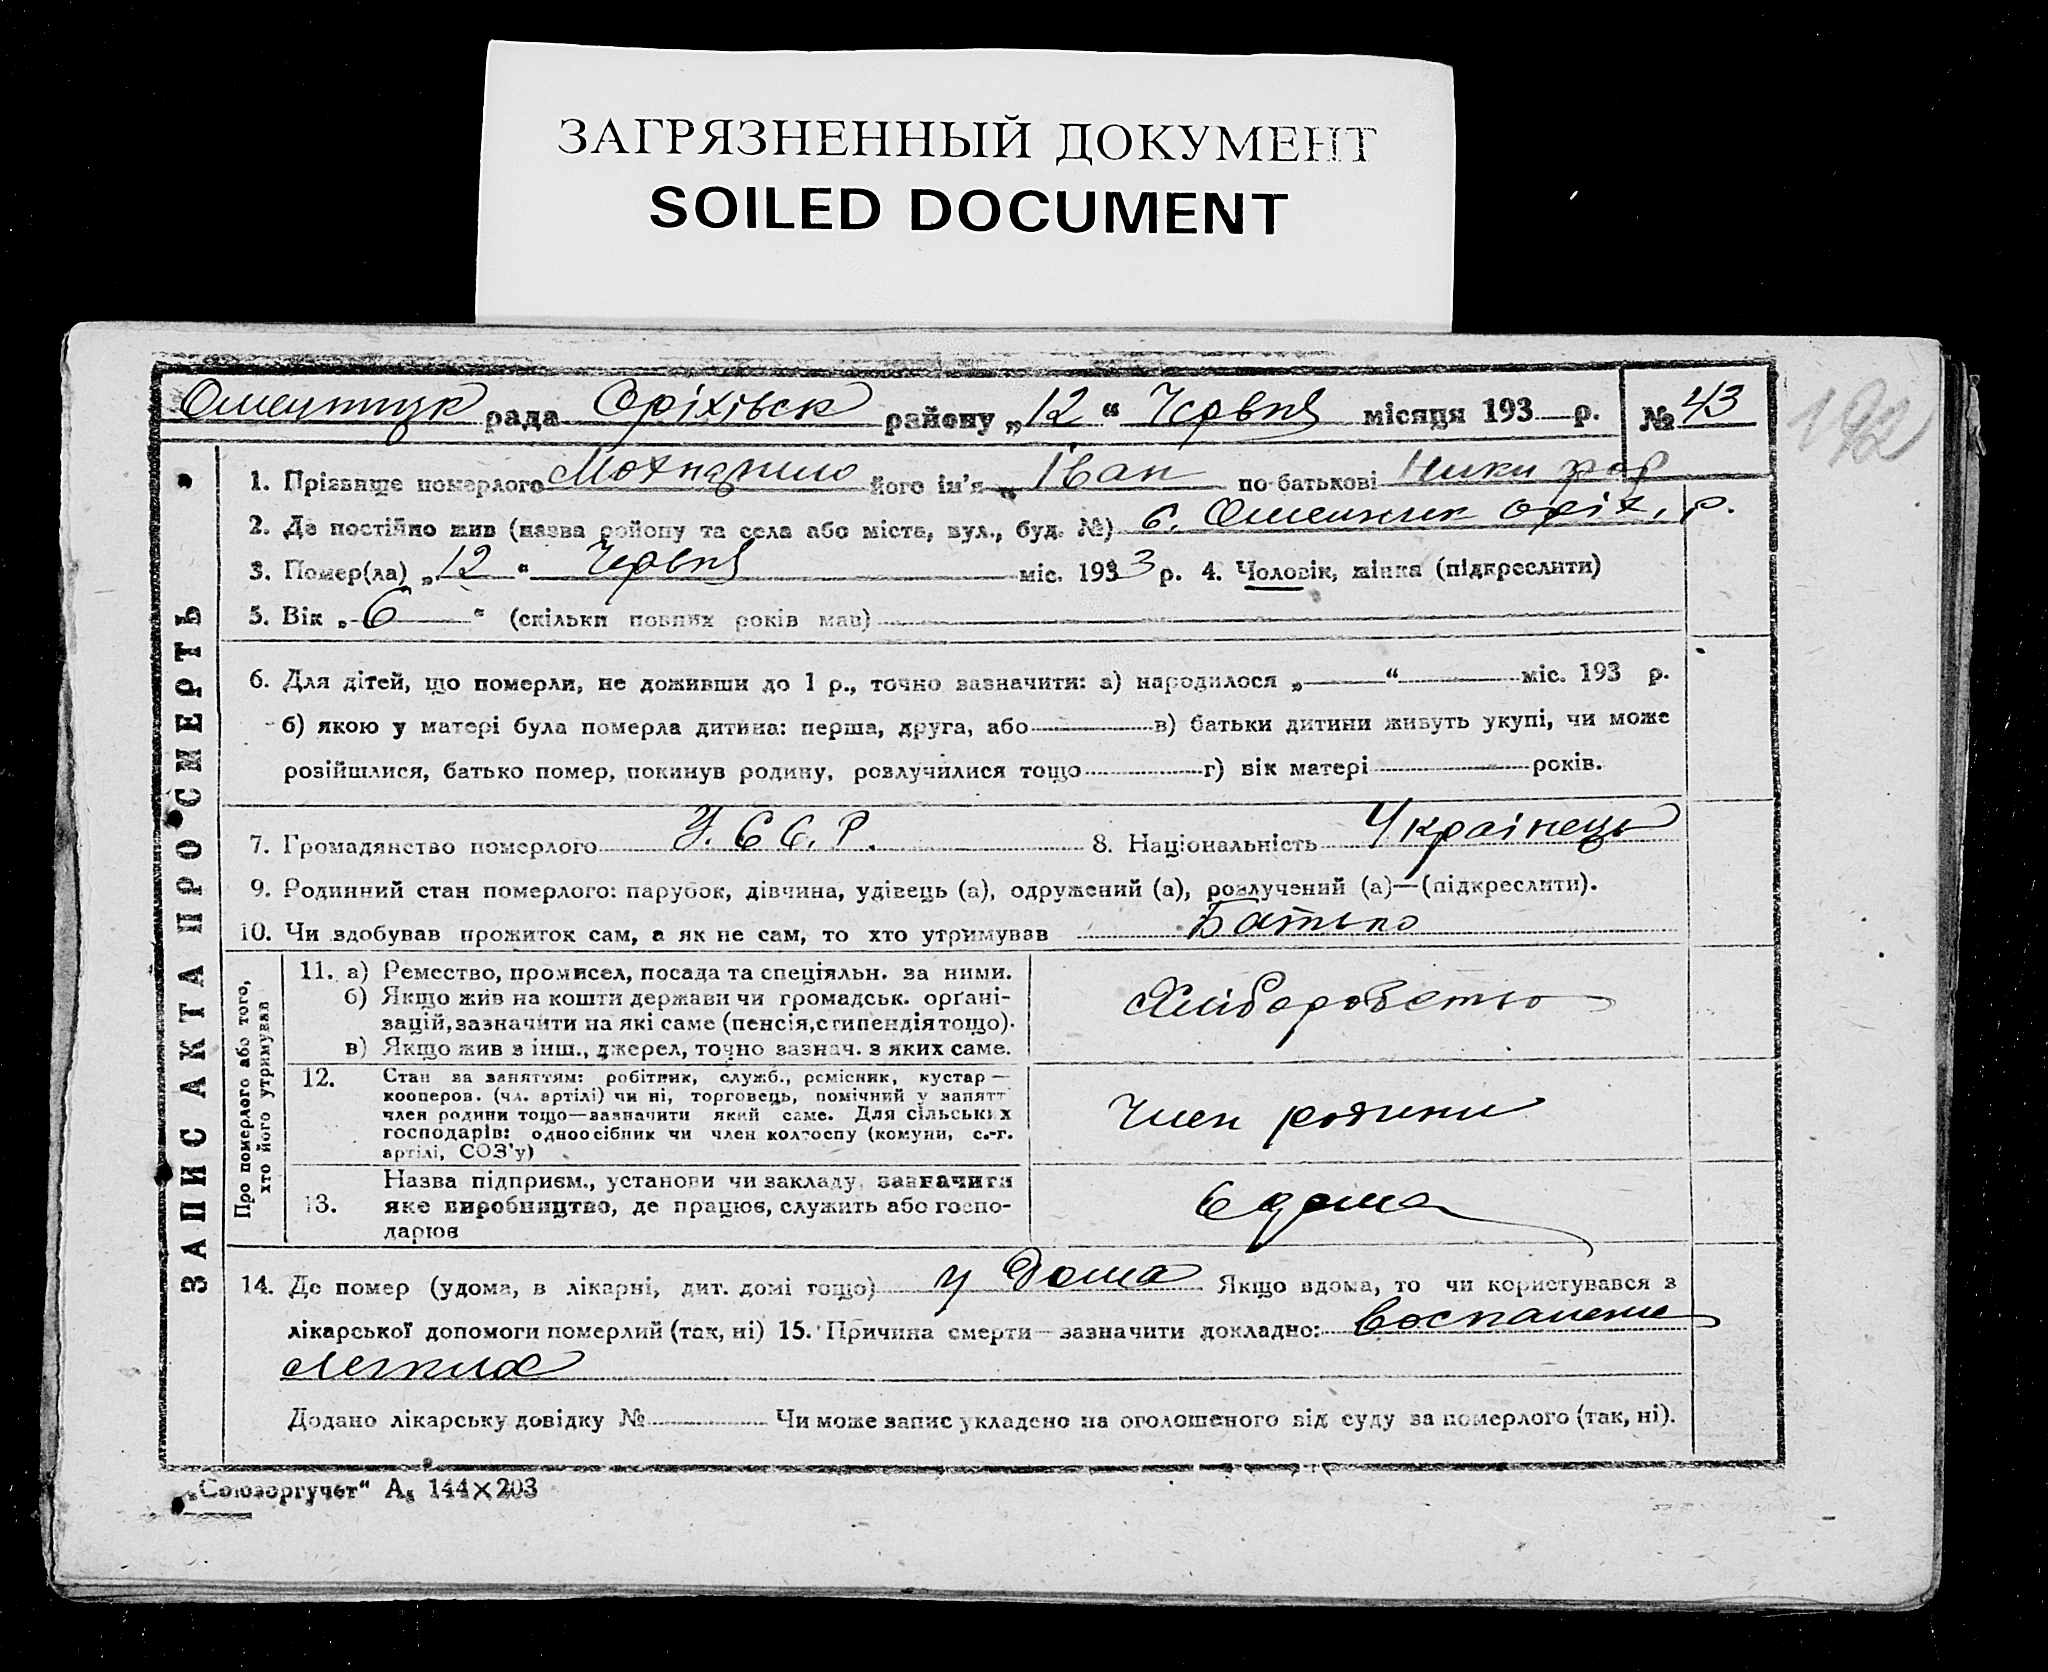 ЗАГРЯЗНЕННЫЙ ДОКУМЕНТ
SOILED DOCUMENT
рада Оріхівськ району „12“ Червня місяця 193 р. № 43
192
ЗАПИС АКТА ПРО СМЕРТЬ
1. Прізвище померлого його ім'я „ Іван по батькові Ники фор
2. Де постійно жив (назва району та села або міста, вул., буд. №) с. Омельник Оріх. р.
3. Помер(ла) „12“ Червня міс. 1933 р. 4. Чоловік, жінка (підкреслити)
5. Вік „6“ (скільки повних років мав)
6. Для дітей, що померли, не доживши до 1 р., точно зазначити: а) народилося „ “ міс. 193 р.
б) якою у матері була померла дитина: перша, друга, або в) батьки дитини живуть укупі, чи може
розійшлися, батько помер, покинув родину, розлучилися тощо г) вік матері років.
7. Громадянство померлого У.С.С.Р. 8. Національність Українець
9. Родинний стан померлого: парубок, дівчина, удівець (а), одружений (а), розлучений (а)—(підкреслити).
10. Чи здобував прожиток сам, а як не сам, то хто утримував Батько
Про померлого або того,
хто його утримував
11. а) Ремество, промисел, посада та спеціяльн. за ними.
б) Якщо жив на кошти держави чи громадськ. орґані-
зацій, зазначити на які саме (пенсія, стипендія тощо).
в) Якщо жив з інш., джерел, точно зазнач. з яких саме.
Хліборобство
12. Стан за заняттям: робітник, служб., ремісник, кустар—
кооперов. (чл. артілі) чи ні, торговець, помічний у занятт
член родини тощо—зазначити який саме. Для сільських
господарів: одноосібник чи член колгоспу (комуни, с.-г.
артілі, СОЗ'у)
Член родини
13. Назва підприєм., установи чи закладу, зазначити
яке виробництво, де працює, служить або госпо-
дарює
14. Де помер (удома, в лікарні, дит. домі тощо) у Дома Якщо вдома, то чи користувався з
лікарської допомоги померлий (так, ні) 15. Причина смерти—зазначити докладно: Воспаление
легких
Додано лікарську довідку № Чи може запис укладено на оголошеного від суду за померлого (так, ні).
„Союзоргучет“ А₅ 144×203